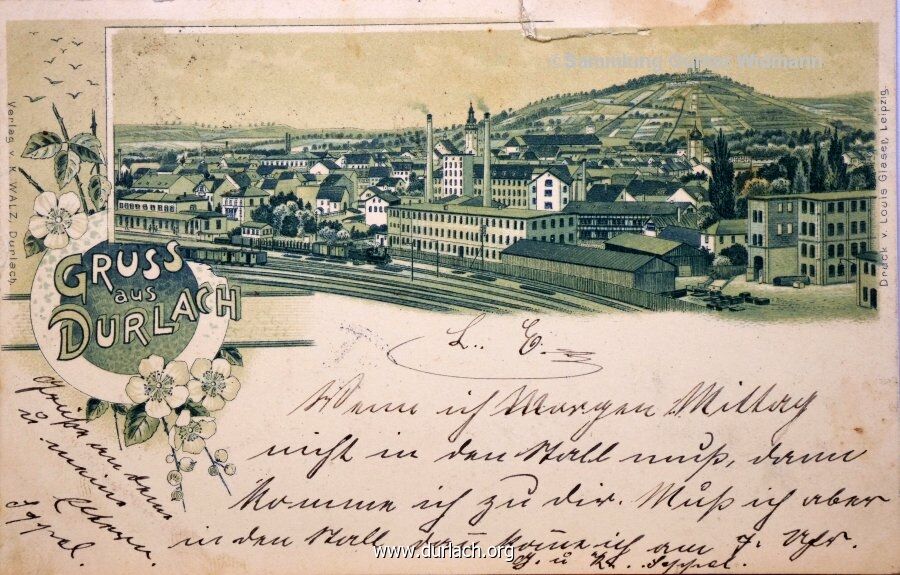 © Sammlung Günter Widmann
Verlag WALZ, Durlach.
Druck v. Louis Glaser, Leipzig.
GRUSS
aus
DURLACH
L. E.
Wenn ich Morgen Mittag
nicht in den Stall muß, dann
komme ich zu dir. Muß ich aber
in den Stall dan kome ich am 7. Uhr.
G. u K.
Grüße an deine
u meine
Eltern.
www.durlach.org